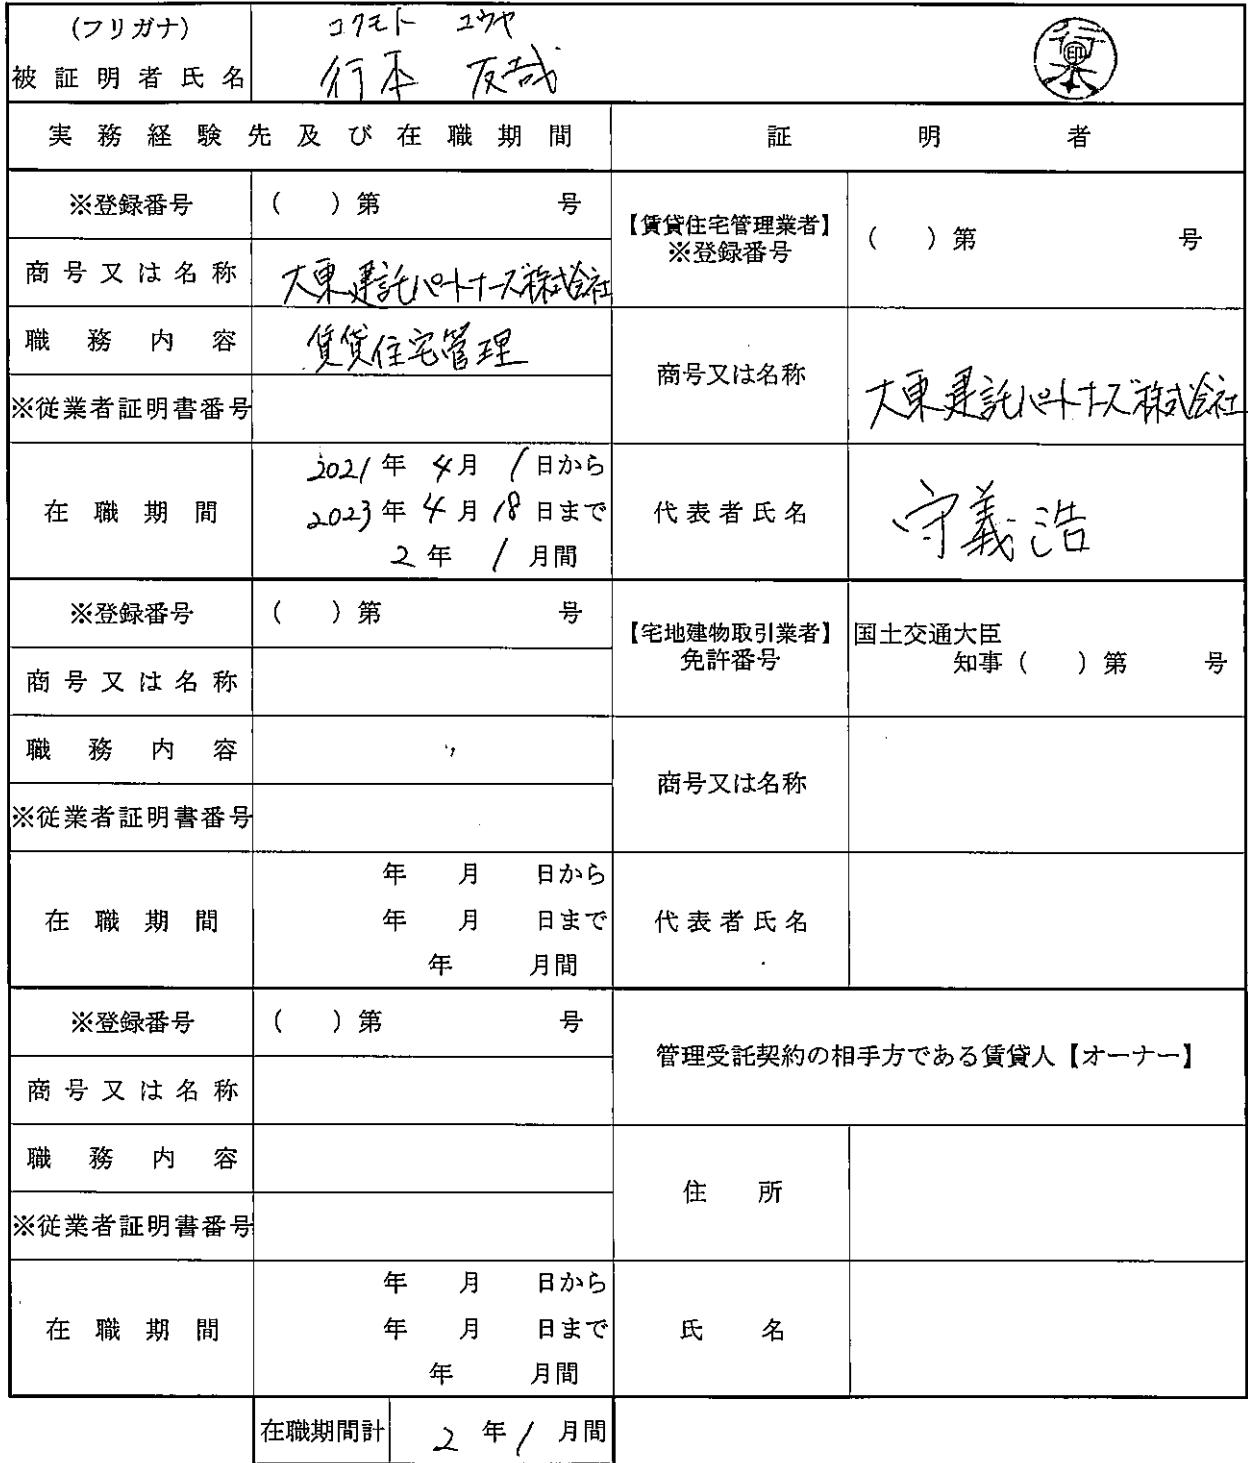 (フリガナ) コクモト ユウヤ
被証明者氏名 行本 友哉 行本 印
実務経験先及び在職期間 証明者
※登録番号 ( )第 号
商号又は名称 大東建託パートナーズ株式会社
職務内容 賃貸住宅管理
※従業者証明書番号
在職期間 2021年 4月 1日から
2023年 4月 18日まで
2年 1月間
【賃貸住宅管理業者】
※登録番号 ( )第 号
商号又は名称 大東建託パートナーズ株式会社
代表者氏名 守義浩
※登録番号 ( )第 号
商号又は名称
職務内容
※従業者証明書番号
在職期間 年 月 日から
年 月 日まで
年 月間
【宅地建物取引業者】 国土交通大臣
免許番号 知事( )第 号
商号又は名称
代表者氏名
※登録番号 ( )第 号
商号又は名称
職務内容
※従業者証明書番号
在職期間 年 月 日から
年 月 日まで
年 月間
管理受託契約の相手方である賃貸人【オーナー】
住所
氏名
在職期間計 2年1月間